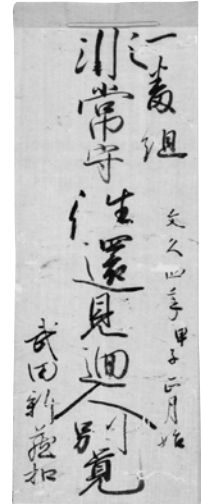 文久四年甲子正月始
番組
川常守
往還見廻人別覚
武田新蔵扣